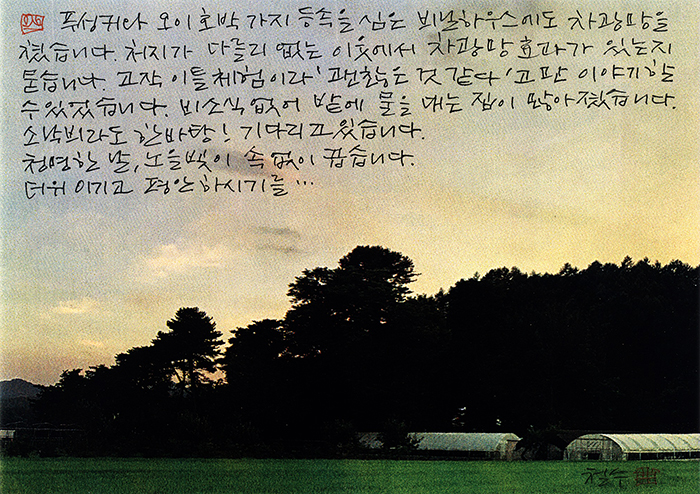 풋성귀와 오이 호박 가지 등속을 심은 비닐하우스에도 차광망을
쳤습니다. 처지가 다를리 없는 이웃에서 차광망 효과가 있는지
묻습니다. 고작 이틀 체험이라 '괜찮은 것 같다'고만 이야기할
수 있었습니다. 비소식 없어 밭에 물을 대는 집이 많아졌습니다.
소낙비라도 한바탕! 기다리고 있습니다.
청명한 날, 노을빛이 속없이 곱습니다.
더위 이기고 평안하시기를 …
철수